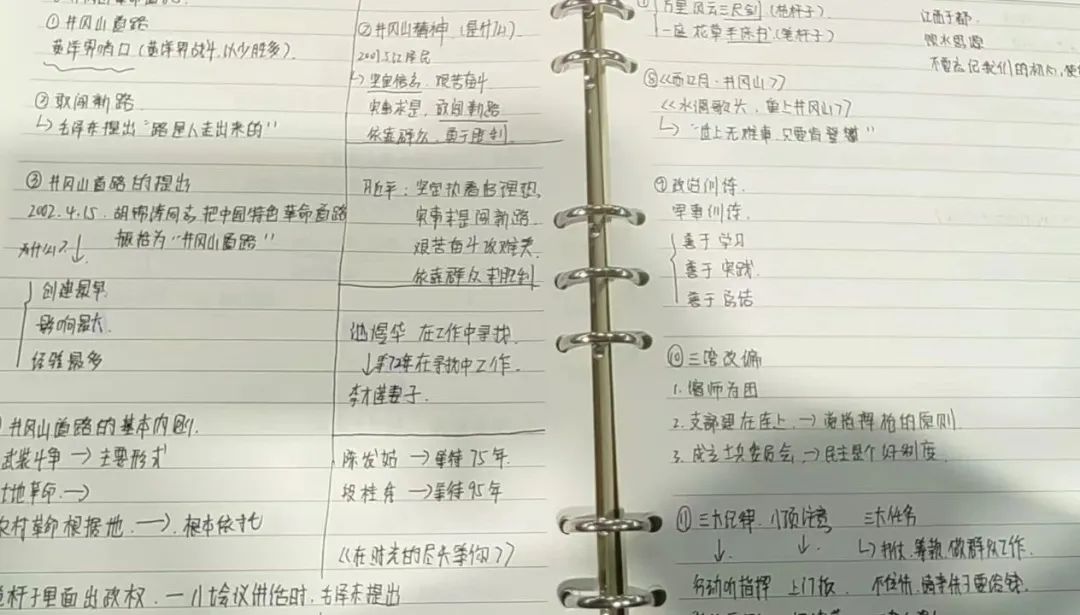 ① 井冈山道路
黄洋界哨口（黄洋界战斗,以少胜多）
② 敢闯新路
↳ 毛泽东提出“路是人走出来的”
③ 井冈山道路的提出
2002.4.15. 胡锦涛同志把中国特色革命道路
概括为“井冈山道路”
为什么? ↓
创建最早
影响最大.
经验最多
井冈山道路的基本内涵.
武装斗争 → 主要形式
土地革命 →
农村革命根据地 → 根本依托
杆子里面出政权. 一 八七会议讲话时,毛泽东提出
② 井冈山精神 (是什么)
↳ 坚定信念 艰苦奋斗
实事求是, 敢闯新路
依靠群众, 勇于胜利.
习近平: 坚定执着追理想,
实事求是闯新路.
艰苦奋斗攻难关.
依靠群众求胜利
池煜华 在工作中寻找.
在寻找中工作.
李才莲妻子.
陈发姑 → 等待75年.
段桂秀 → 等待95年
《在时光的尽头等你》
万里风云三尺剑 (枪杆子)
一庭花草半床书 (笔杆子)
江西于都.
饮水思源
不要忘记我们的初心,使
⑧《西江月·井冈山》
《水调歌头, 重上井冈山》
↳ “世上无难事 只要肯登攀”
⑨ 政治训练.
军事训练.
善于 学习
善于 实践.
善于 总结
⑩ 三湾改编
1. 缩师为团
2. 支部建在连上. → 党指挥枪的原则
3. 成立士兵委员会, → 民主
⑪ 三大纪律. 八项注意 三大任务
↓ ↓ ↳ 打仗、筹款、做群众工作.
行动听指挥 上门板